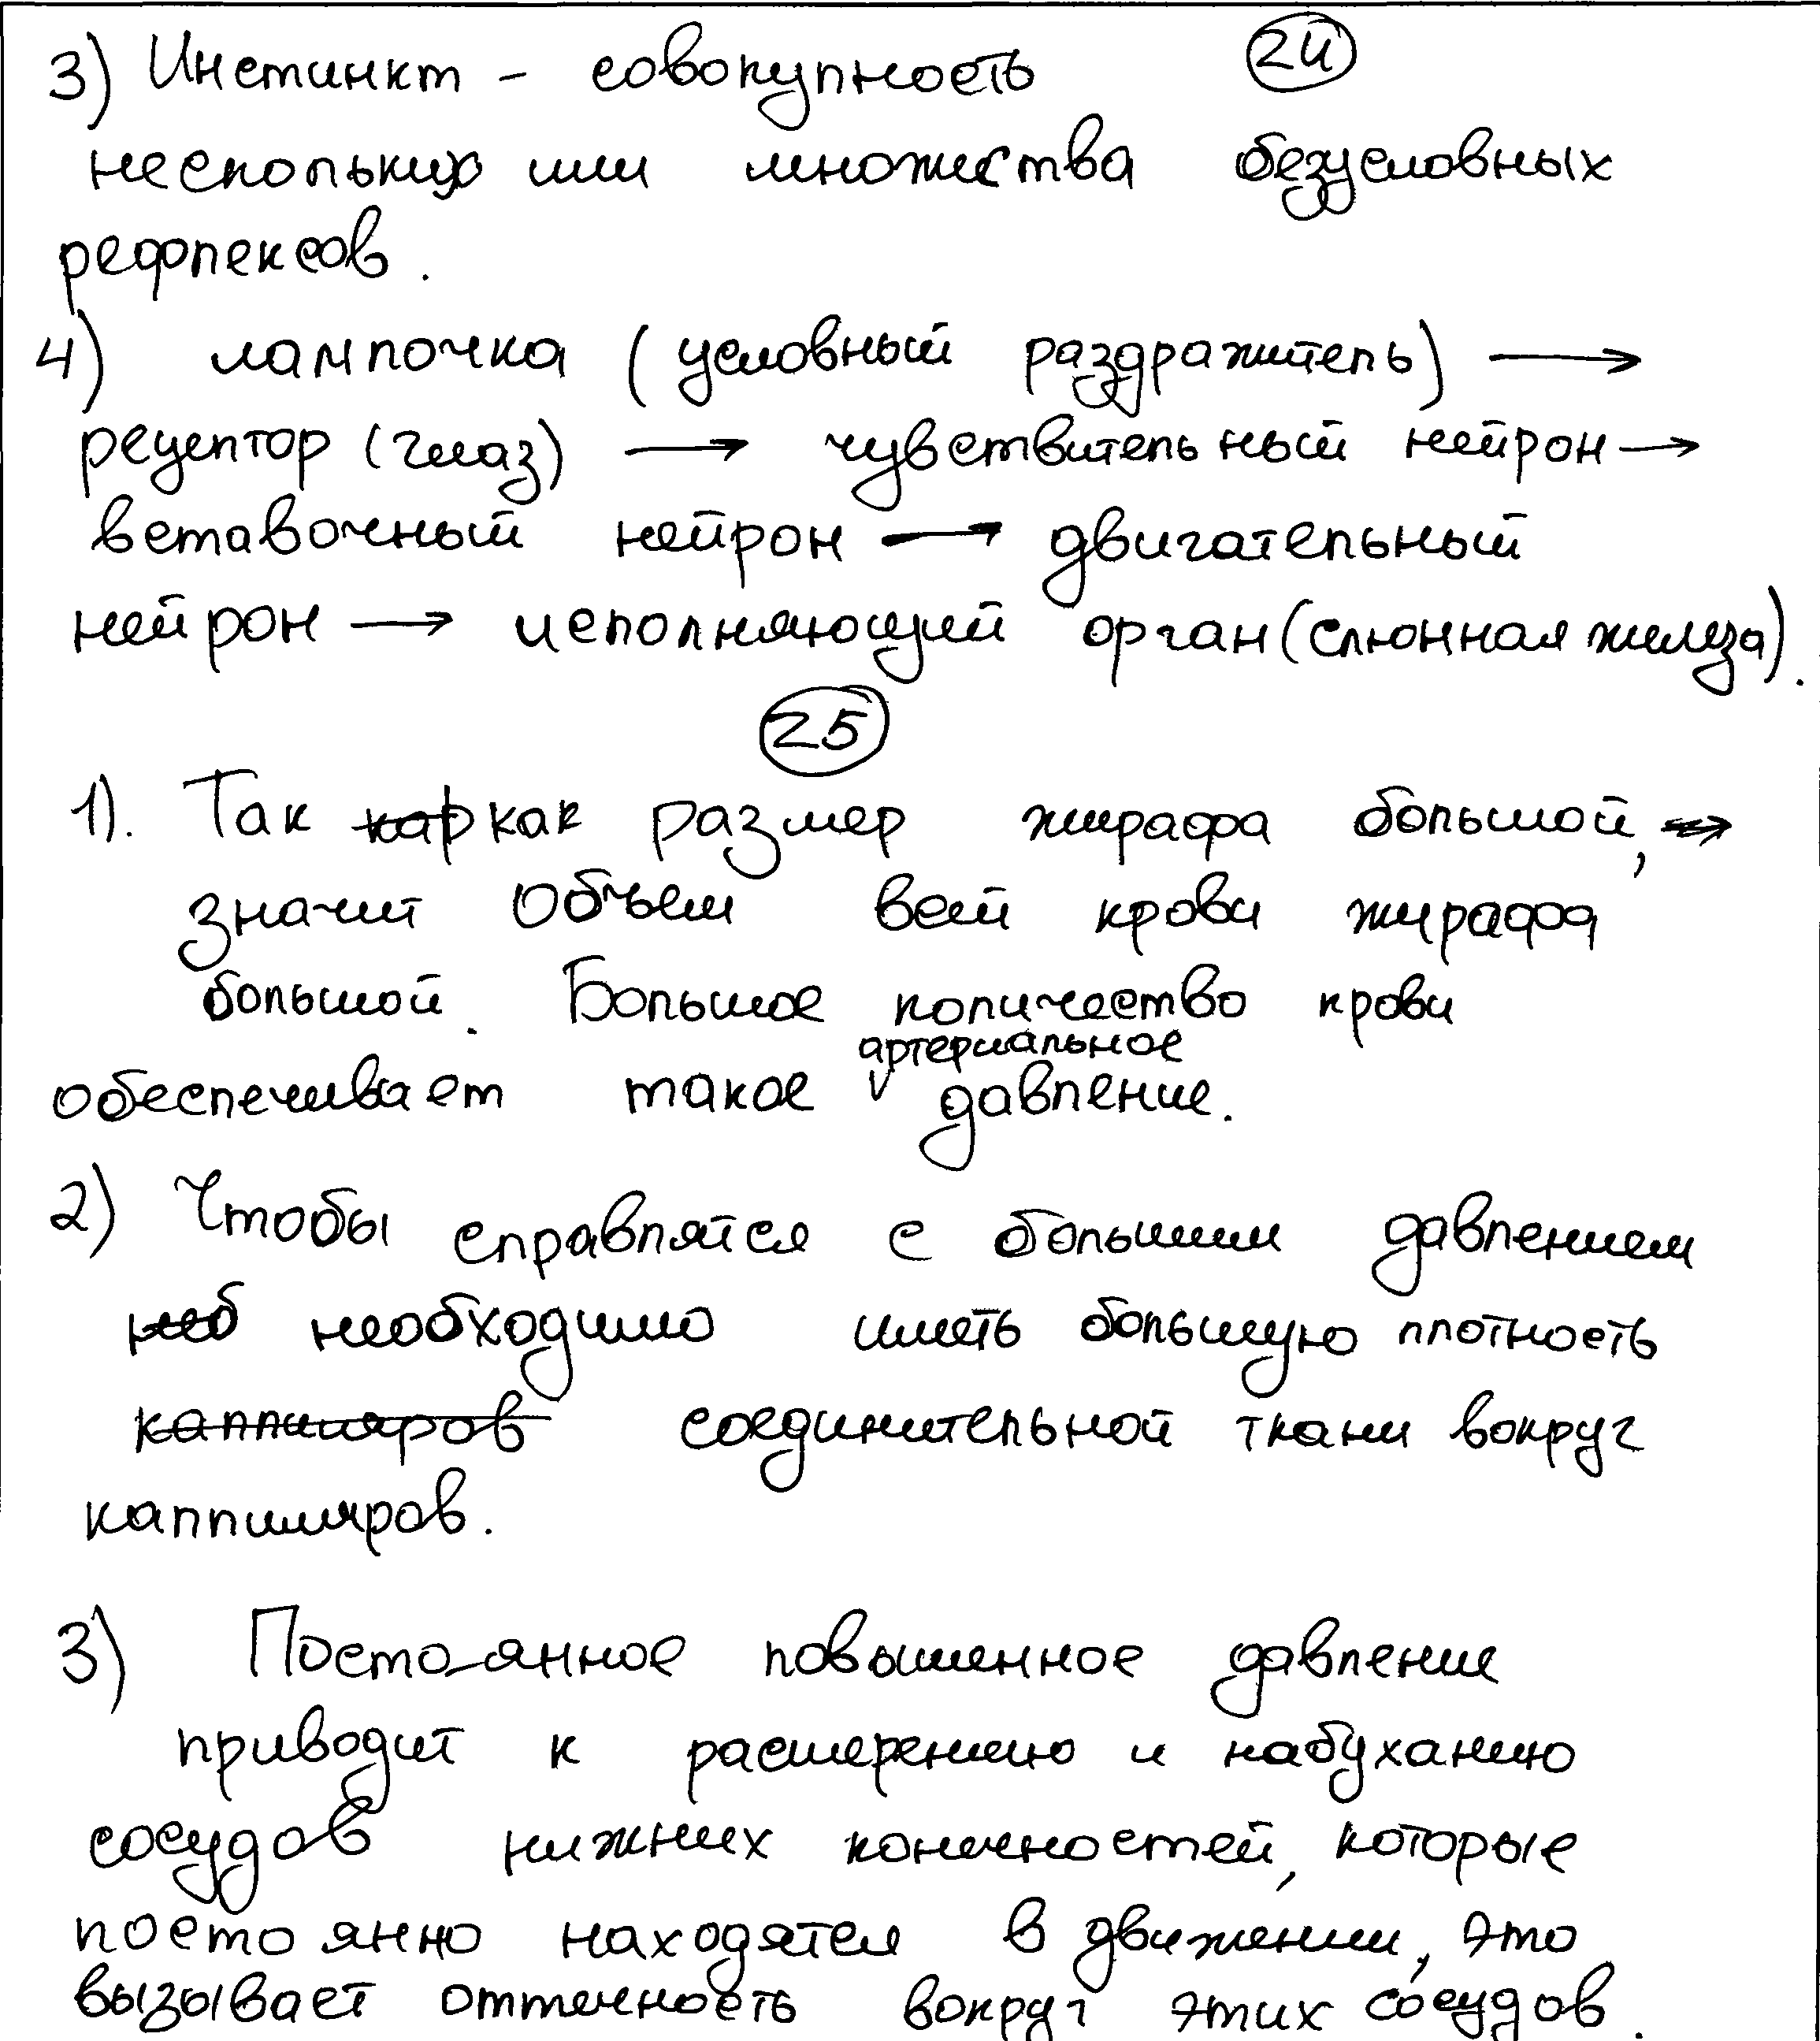 3) Инстинкт - совокупность 24
нескольких или множества безусловных
рефлексов.
4) лампочка (условный раздражитель) →
рецептор (глаз) → чувствительный нейрон →
вставочный нейрон → двигательный
нейрон → исполняющий орган (слюнная железа).
25
1). Так кар как размер жирафа большой,
значит объем всей крови жирафа
большой. Большое количество крови
артериальное
обеспечивает такое давление.
2) Чтобы справлятся с большим давлением
необ необходимо иметь большую плотность
каппиляров соединительной ткани вокруг
каппиляров.
3) Постоянное повышенное давление
приводит к расширению и набуханию
сосудов нижних конечностей, которые
постоянно находятся в движении, это
вызывает оттечность вокруг этих сосудов.